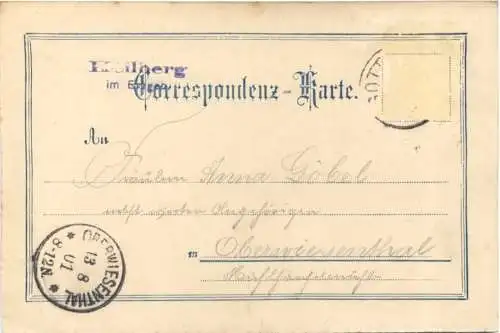 Keilberg
im Erzgeb.
Correspondenz-Karte.
GOTT
An
Fräulein Anna Göbel
nebst werten Angehörigen
in Oberwiesenthal
OBERWIESENTHAL
13 8 01
8-12N.